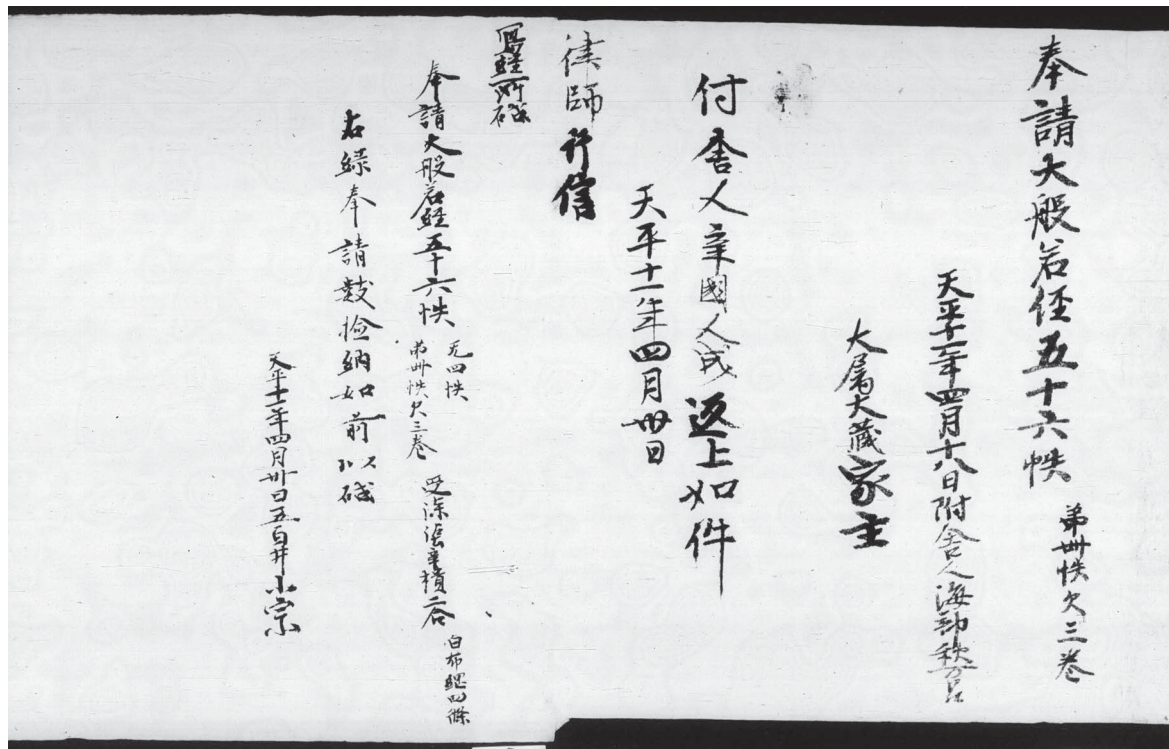 奉請大般若経五十六帙 弟卅帙欠三巻
天平十一年四月十八日附舎人海
大属大蔵家主
付舎人辛國人成返上如件
天平十一年四月卅日
律師行信
冩經所牒
奉請大般若經五十六帙 无四帙 弟卅帙欠三巻 二合 白布縄四條
右縁奉請数撿納如前以牒
天平十一年四月卅日 小宗